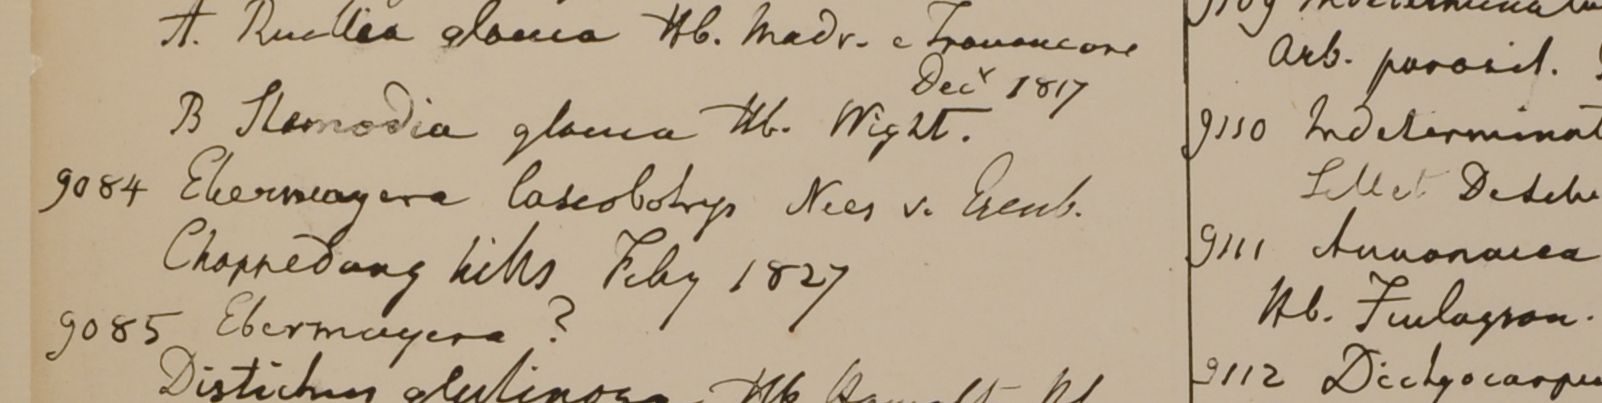 A. Ruellia glauca Hb. Madr. e Travancore
Decr 1817
B Stemodia glauca Hb. Wight.
9084 Ebermayera lasiobotrys Nees v. Esenb.
Choppedong hills Feby 1827
9085 Ebermayera ?
Distichus glutinosa. Hb
9109 Indeterminata
Arb. parasit.
9110 Indeterminat
9111 Annonacea
Hb. Finlayson.
9112 Dictyocarpu